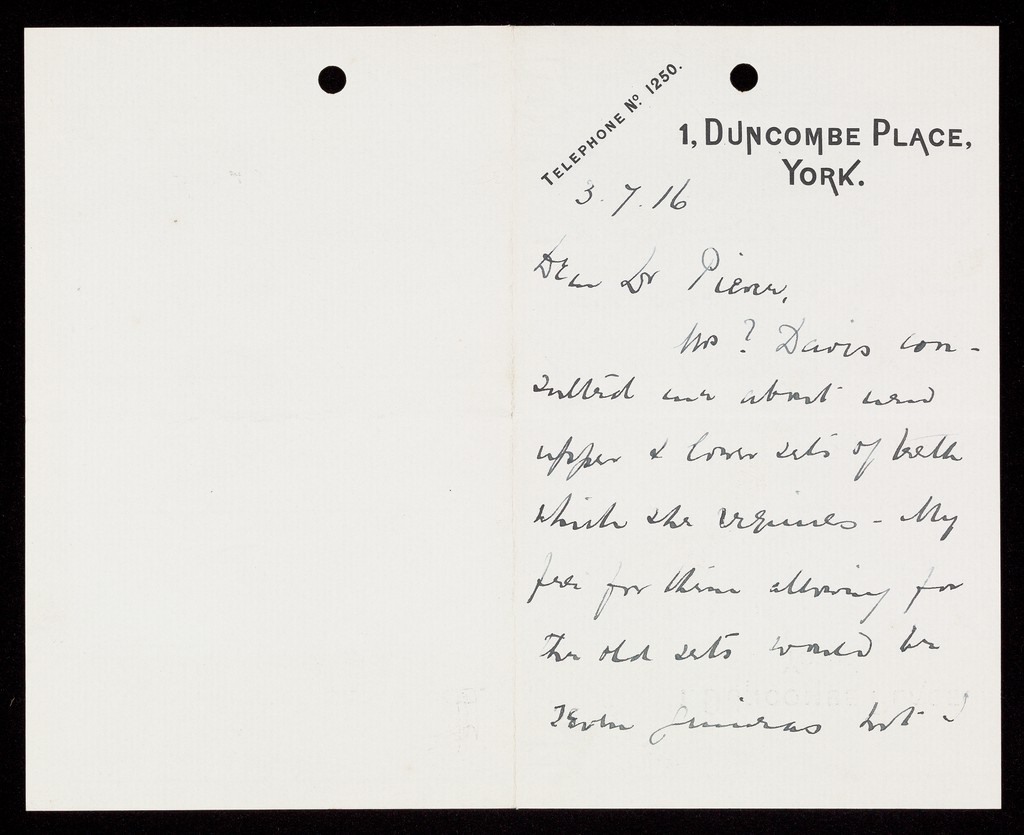 TELEPHONE Nº 1250.
1, DUNCOMBE PLACE,
YORK.
3.7.16
Dear Dr Pierce,
Mrs ? Davis con-
sulted me about new
upper & lower sets of teeth
which she requires - My
fee for them allowing for
the old sets would be
seven guineas but